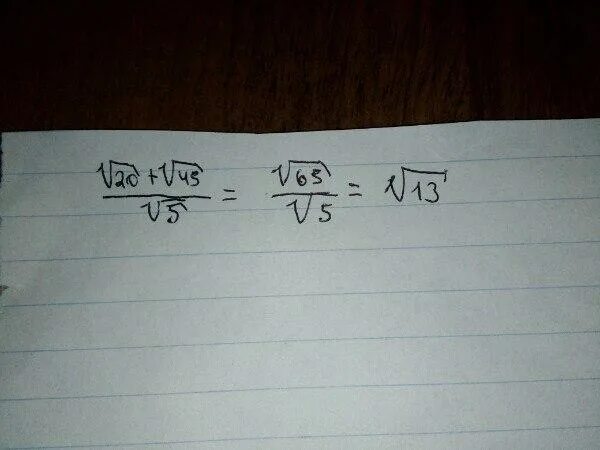 (√20 + √45) / √5 = √65 / √5 = √13